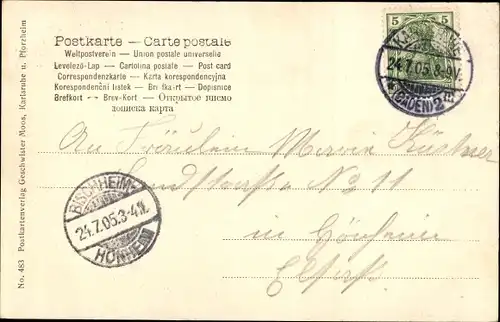 Postkarte — Carte postale
Weltpostverein — Union postale universelle
Levelező-Lap — Cartolina postale — Post card
Correspondenzkarte — Karta korespondencyjna
Korespondenční lístek — Briefkaart — Dopisnice
Brefkort — Brev-Kort — Открытое письмо
дописна карта
5 5
KARLSRUHE
24.7.05.8-9V.
(BADEN) 2
An Fräulein Maria
Landstraße No 11
in Hönheim
Elsaß
BISCHHEIM-
24.7.05.3-4N.
HÖNHEIM
No. 483 Postkartenverlag Geschwister Moos, Karlsruhe u. Pforzheim